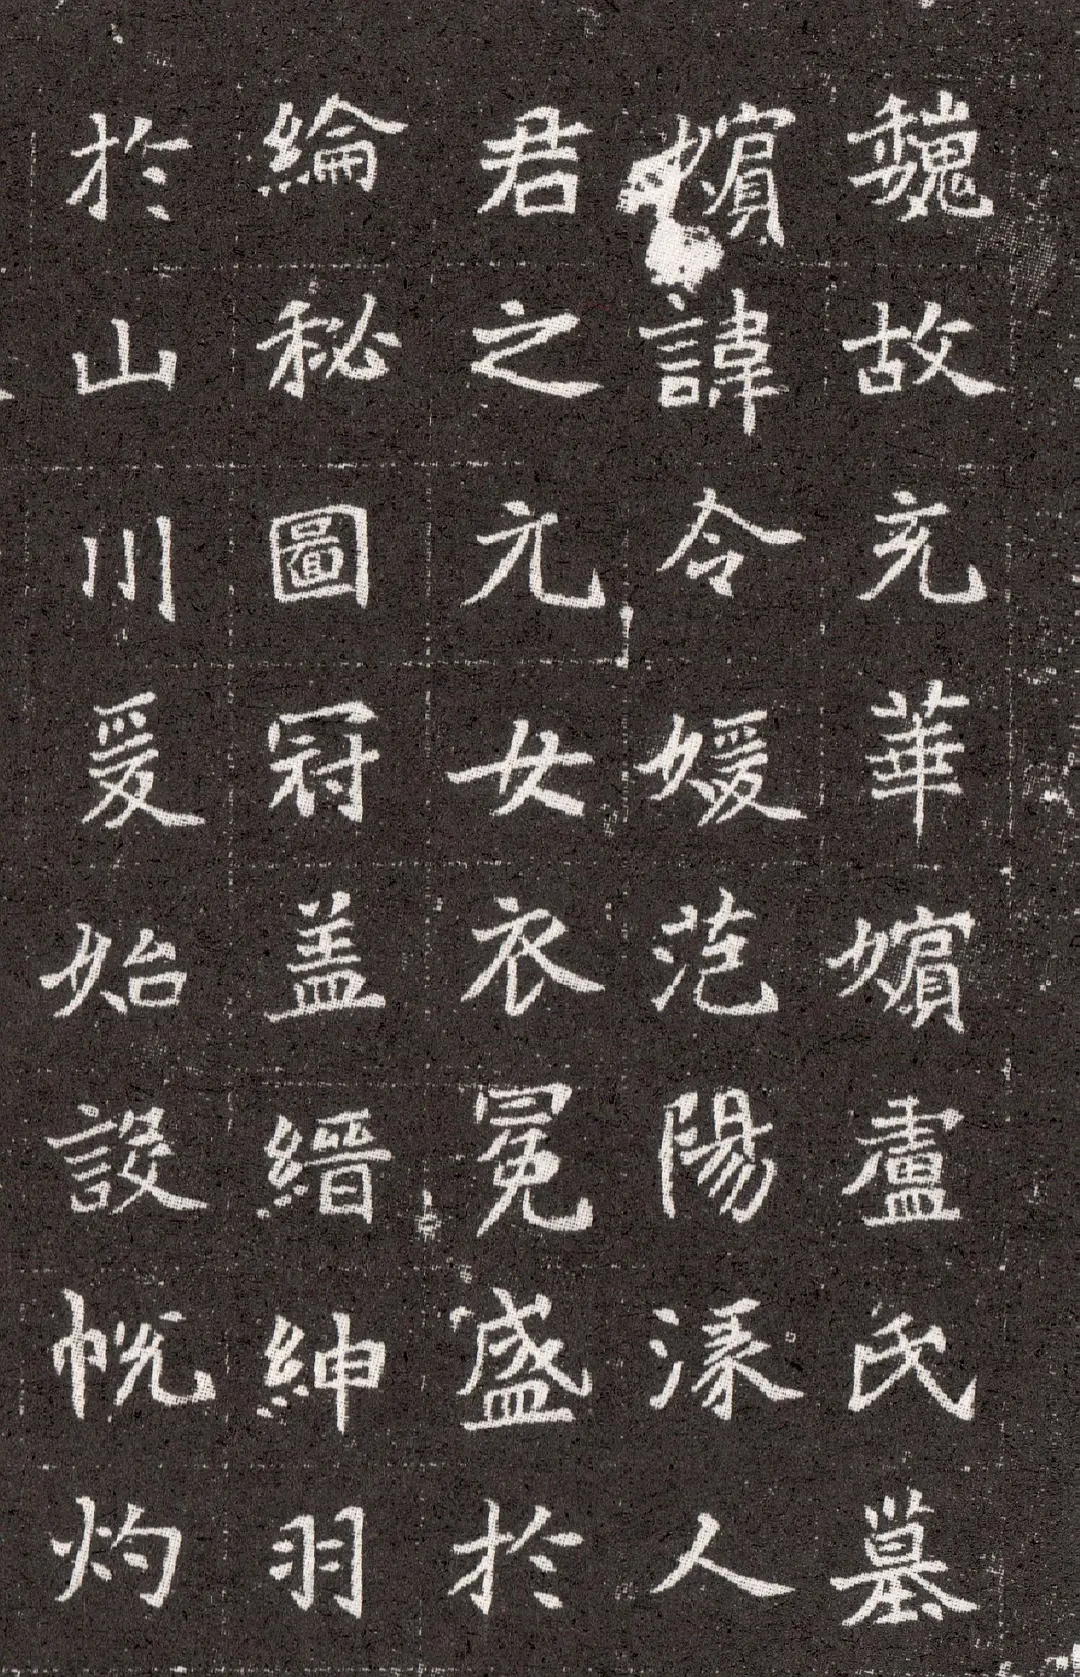 魏故充華嬪盧氏墓
嬪諱令媛范陽涿人
君之元女衣冕盛於
綸秘圖冠盖縉紳羽
於山川爰始設帨灼